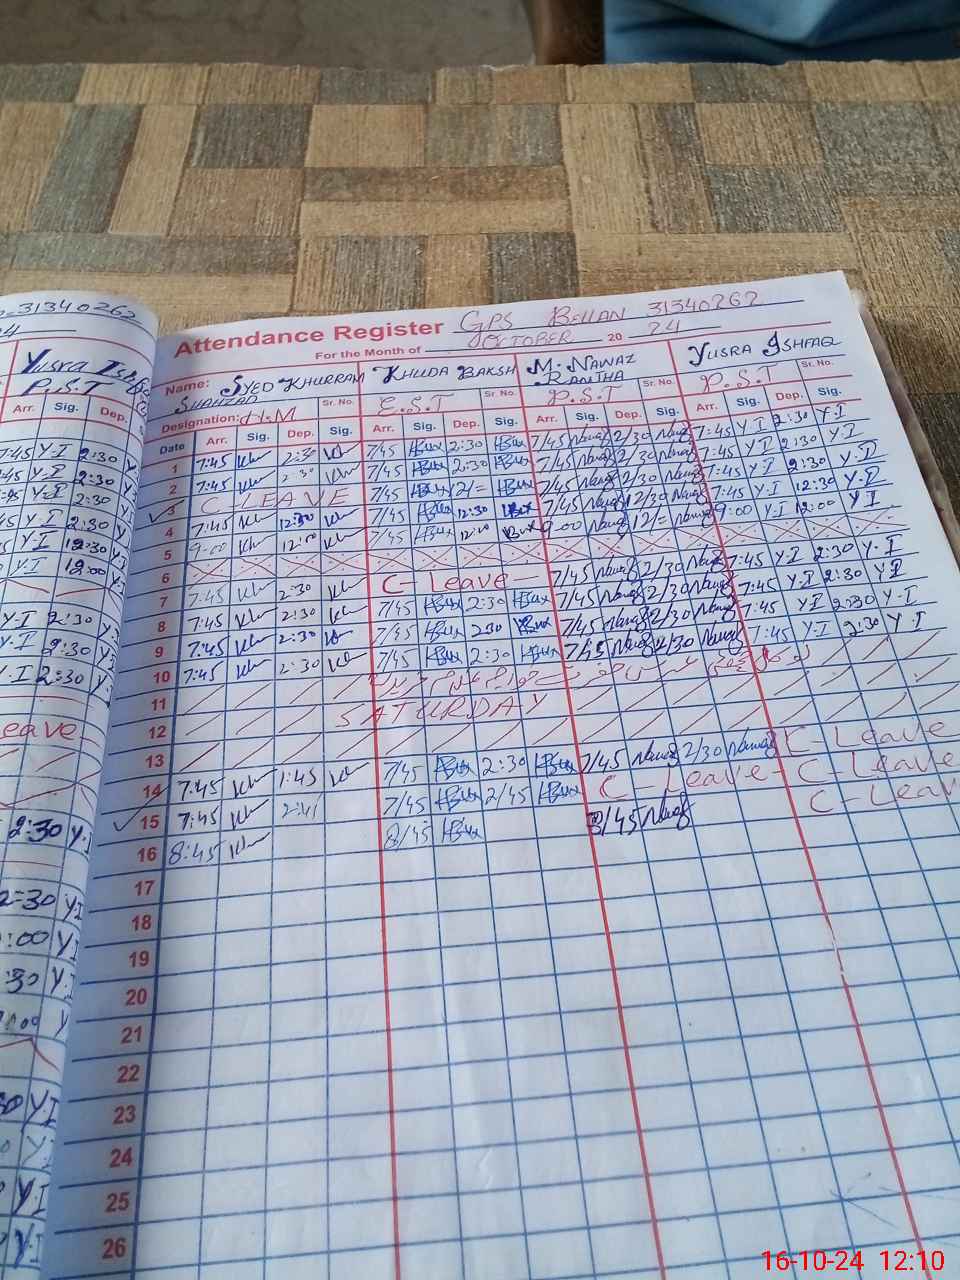 31340262
24
Yusra Ish
P.S.T
Arr. Sig. Dep.
7:45 Y-I 2:30
:45 Y-I 2:30
:45 Y-I 2:30
45 Y-I 2:30
Y-I 12:30
Y-I 12:00
Y-I 2:30
Y-I 2:30
Y-I 2:30
eave
2:30 Y.I
2=30 Y.I
:00 Y
:30 Y.I
:00 Y
30 Y.I
Y.I
Y.I
Attendance Register GPS BELLAN 31340262
For the Month of OCTOBER 20 24
Name: SYED KHURRAM SHAHZAD KHUDA BAKSH M. NAWAZ RANJHA YUSRA ISHFAQ
Designation: H.M Sr. No. E.S.T Sr. No. P.S.T Sr. No. P.S.T
Date Arr. Sig. Dep. Sig. Arr. Sig. Dep. Sig. Arr. Sig. Dep. Sig. Arr. Sig. Dep. Sig.
1 7:45 2:30 7/45 HBux 2:30 HBux 7/45 Nawaz 2/30 Nawaz 7:45 Y-I 2:30 Y-I
2 7:45 2:30 7/45 HBux 2:30 HBux 7/45 Nawaz 2/30 Nawaz 7:45 Y-I 2:30 Y-I
3 C-LEAVE 7/45 HBux 12/= HBux 7/45 Nawaz 2/30 Nawaz 7:45 Y-I 2:30 Y-I
4 7:45 12:30 7/45 HBux 12:30 HBux 7/45 Nawaz 12/30 Nawaz 7:45 Y-I 12:30 Y-I
5 9:00 12:00 7/45 HBux 12:00 HBux 9:00 Nawaz 12/= Nawaz 9:00 Y-I 12:00 Y-I
6
7 7:45 2:30 C-Leave- 7/45 Nawaz 2/30 Nawaz 7:45 Y-I 2:30 Y-I
8 7:45 2:30 7/45 HBux 2:30 HBux 7/45 Nawaz 2/30 Nawaz 7:45 Y-I 2:30 Y-I
9 7:45 2:30 7/45 HBux 2:30 HBux 7/45 Nawaz 2/30 Nawaz 7:45 Y-I 2:30 Y-I
10 7:45 2:30 7/45 HBux 2:30 HBux 7/45 Nawaz 2/30 Nawaz 7:45 Y-I 2:30 Y-I
11
12 SATURDAY
13
14 7:45 1:45 7/45 HBux 2:30 HBux 7/45 Nawaz 2/30 Nawaz C-Leave
15 7:45 2:41 7/45 HBux 2/45 HBux C-Leave- C-Leave
16 8:45 8/45 HBux 8/45 Nawaz C-Leav
17
18
19
20
21
22
23
24
25
26
16-10-24 12:10